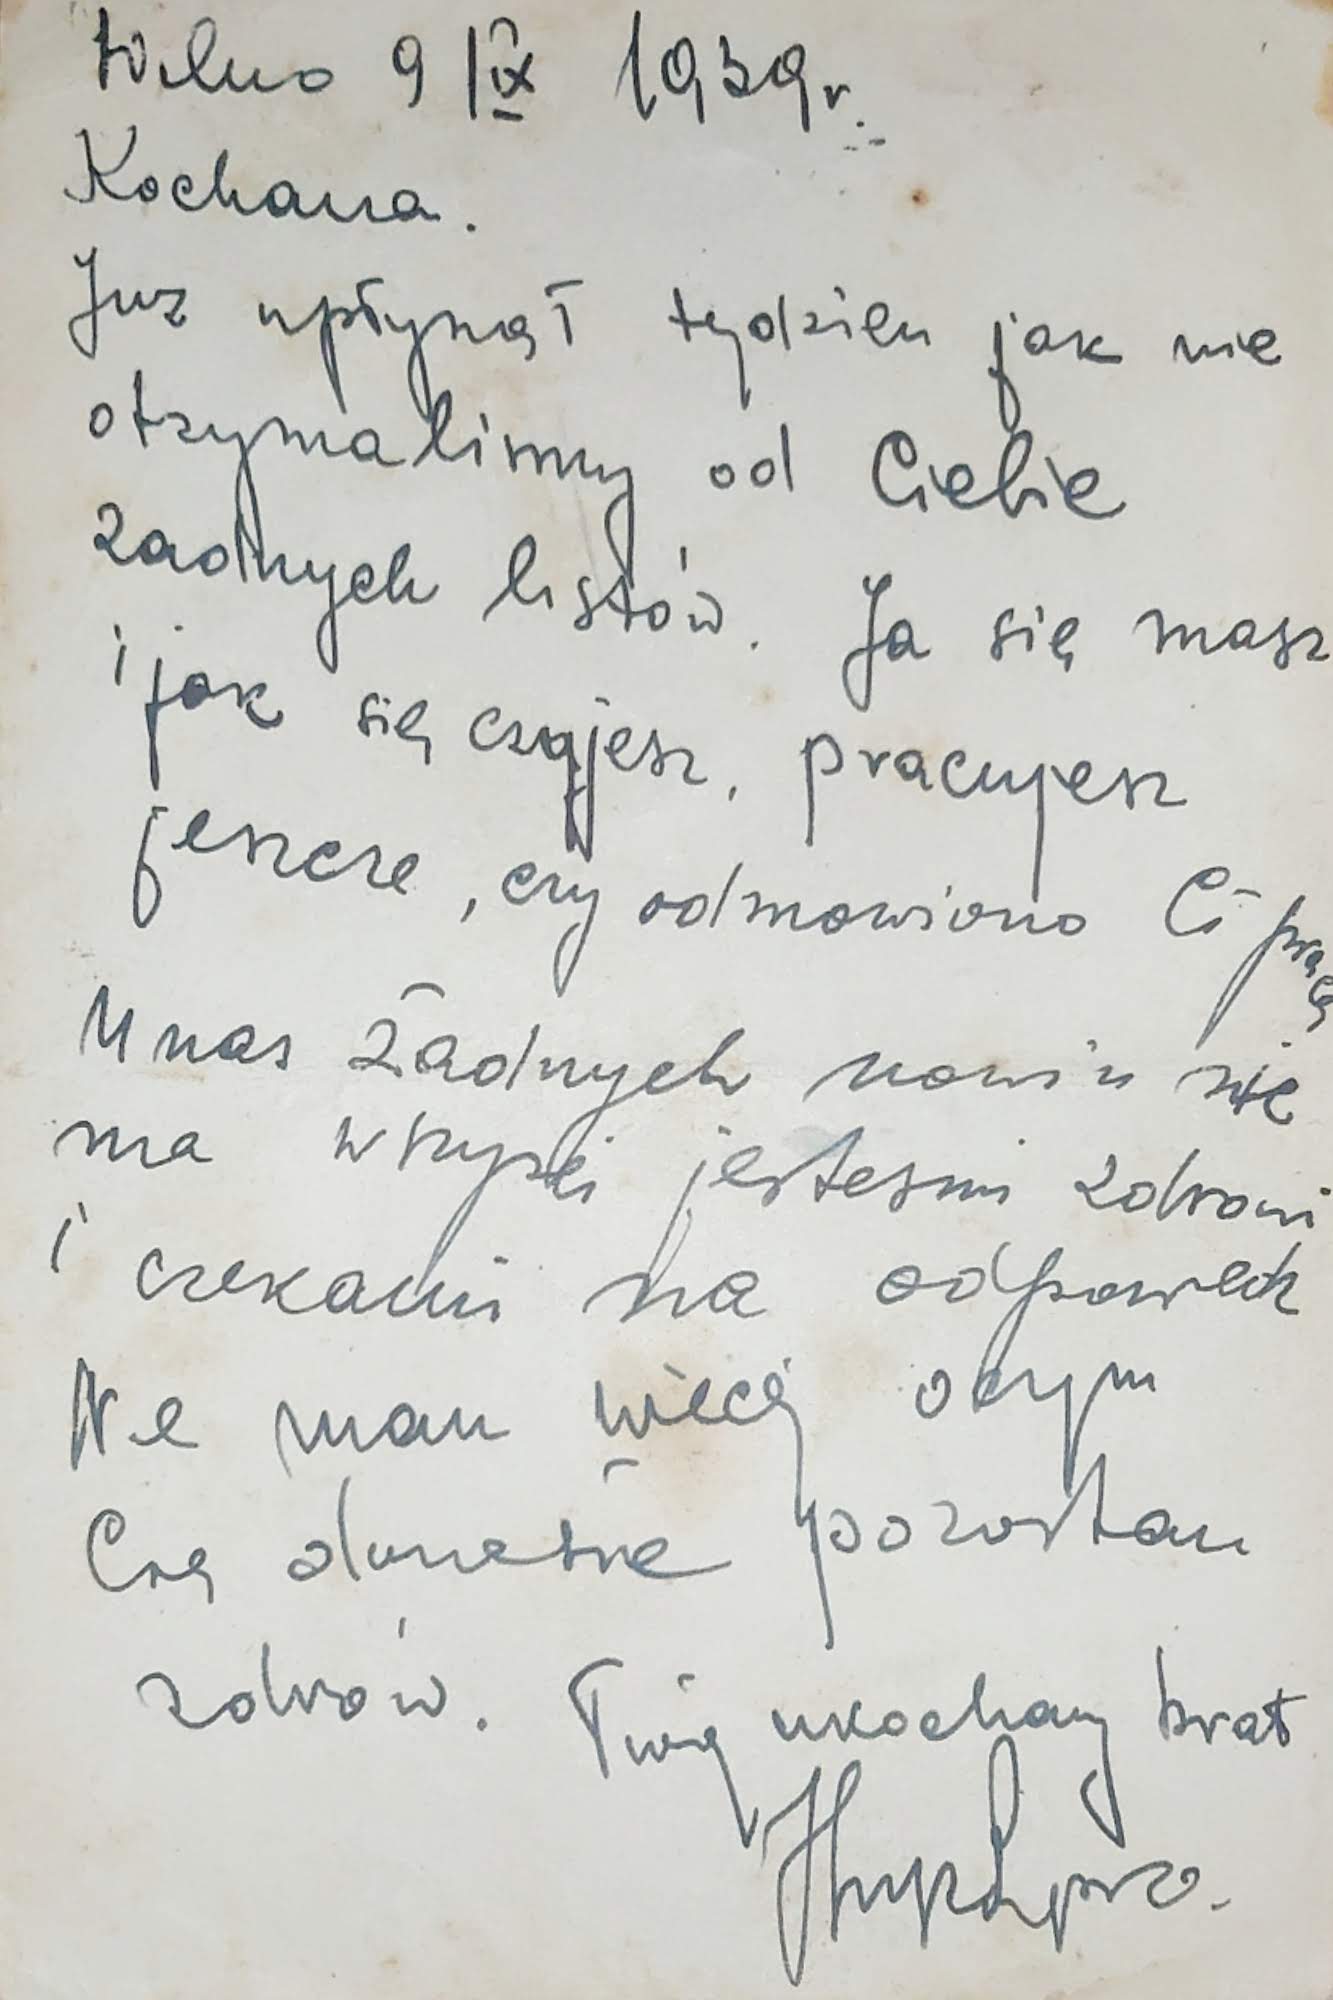 Wilno 9 IX 1939r.
Kochana.
Już upłynął tydzień jak nie
otrzymalimy od Ciebie
żadnych listów. Ja się masz
i jak się czujesz, pracujesz
jeszcze, czy odmowiono Ci pracę
U nas żadnych nowin nie
ma wszysci jestesmi zdrowi
i czekami na odpowiedz
Nie mam więcej oczym
Cię donieśie pozostan
zdrów. Twój ukochany brat